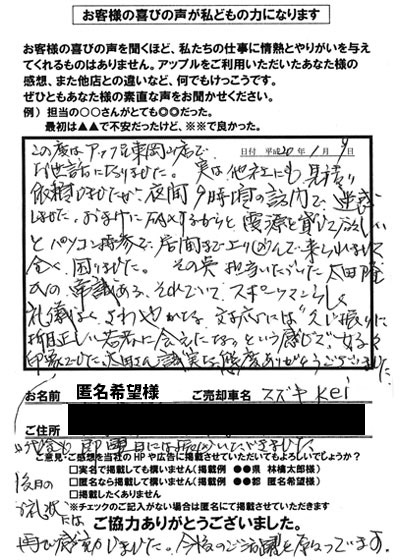 お客様の喜びの声が私どもの力になります
お客様の喜びの声を聞くほど、私たちの仕事に情熱とやりがいを与え
てくれるものはありません。アップルをご利用いただいたあなた様の
感想、また他店との違いなど、何でもけっこうです。
ぜひともあなた様の素直な声をお聞かせください。
例）担当の〇〇さんがとても◎◎だった。
最初は▲▲で不安だったけど、※※で良かった。
日付 平成20年1月9日
この度はアップル東岡山店で
お世話になりました。実は他社にも見積り
依頼しましたが、夜間9時頃の訪問で、迷惑
しました。おまけに 入力するからと電源を貸してほしい
とパソコン持参で、居間まで上りこんで来られまして
全く、困りました。その点担当いただいた太田隆
さんの常識ある、それでいて、スポーツマンらしく
礼儀よく、さわやかな
若者に会えたな。という感じで、女子にも
印象でした。太田さん誠実な態度ありがとうございました
お名前 匿名希望様 ご売却車名 スズキ Kei
ご住所
翌日には振込いただきました。
ご意見・ご感想を当社のHPや広告に掲載させていただいてもよろしいでしょうか？
□実名で掲載しても構いません（掲載例 ●●県 林檎太郎様）
□匿名なら掲載して構いません（掲載例 ●●都 匿名希望様）
□掲載したくありません
※チェックのご記入がない場合は匿名にて掲載させていただきます
後日の
お礼状には
ご協力ありがとうございました。
再び感激しました。今後のご活躍を祈っています。